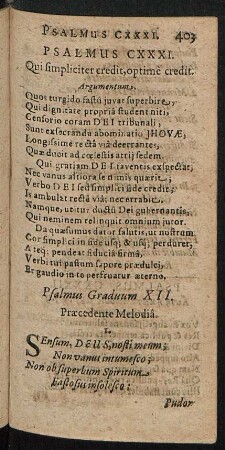 PSALMUS CXXXI. 403
PSALMUS CXXXI.
Qui simpliciter credit, optimè credit.
Argumentum.
Quos turgido fastû juvat superbire,
Qui dignitate propriâ student niti,
Censorio coram DEI tribunali;
Sunt exsecranda abominatio JHOVÆ;
Longissimè rectâ viâ deerrantes,
Quæ ducit ad cœlestis atrij sedem.
Qui gratiam DEI faventis exspectat,
Nec vanus altiora se nimis quærit,
Verbo DEI sed simplici fide credit;
Is ambulat rectâ viâ; nec errabit.
Namque, utitur ductû Dei gubernantis,
Qui neminem relinquit omnium jutor.
Da quæsumus dator salutis, ut nostrum
Cor simplici in fide usq; & usq; perduret,
A teq; pendeat fiduciâ firmâ,
Verbi tui pastum sapore prædulci,
Et gaudio in te perfruatur æterno.
Psalmus Graduum XII.
Præcedente Melodiâ.
1.
SEnsum, DEUS, nosti meum;
Non vanus intumesco;
Non ob superbum Spiritum
Fastosus insolesco;
Pudor